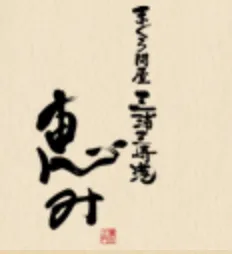 まぐろ問屋 三浦三崎港
恵み